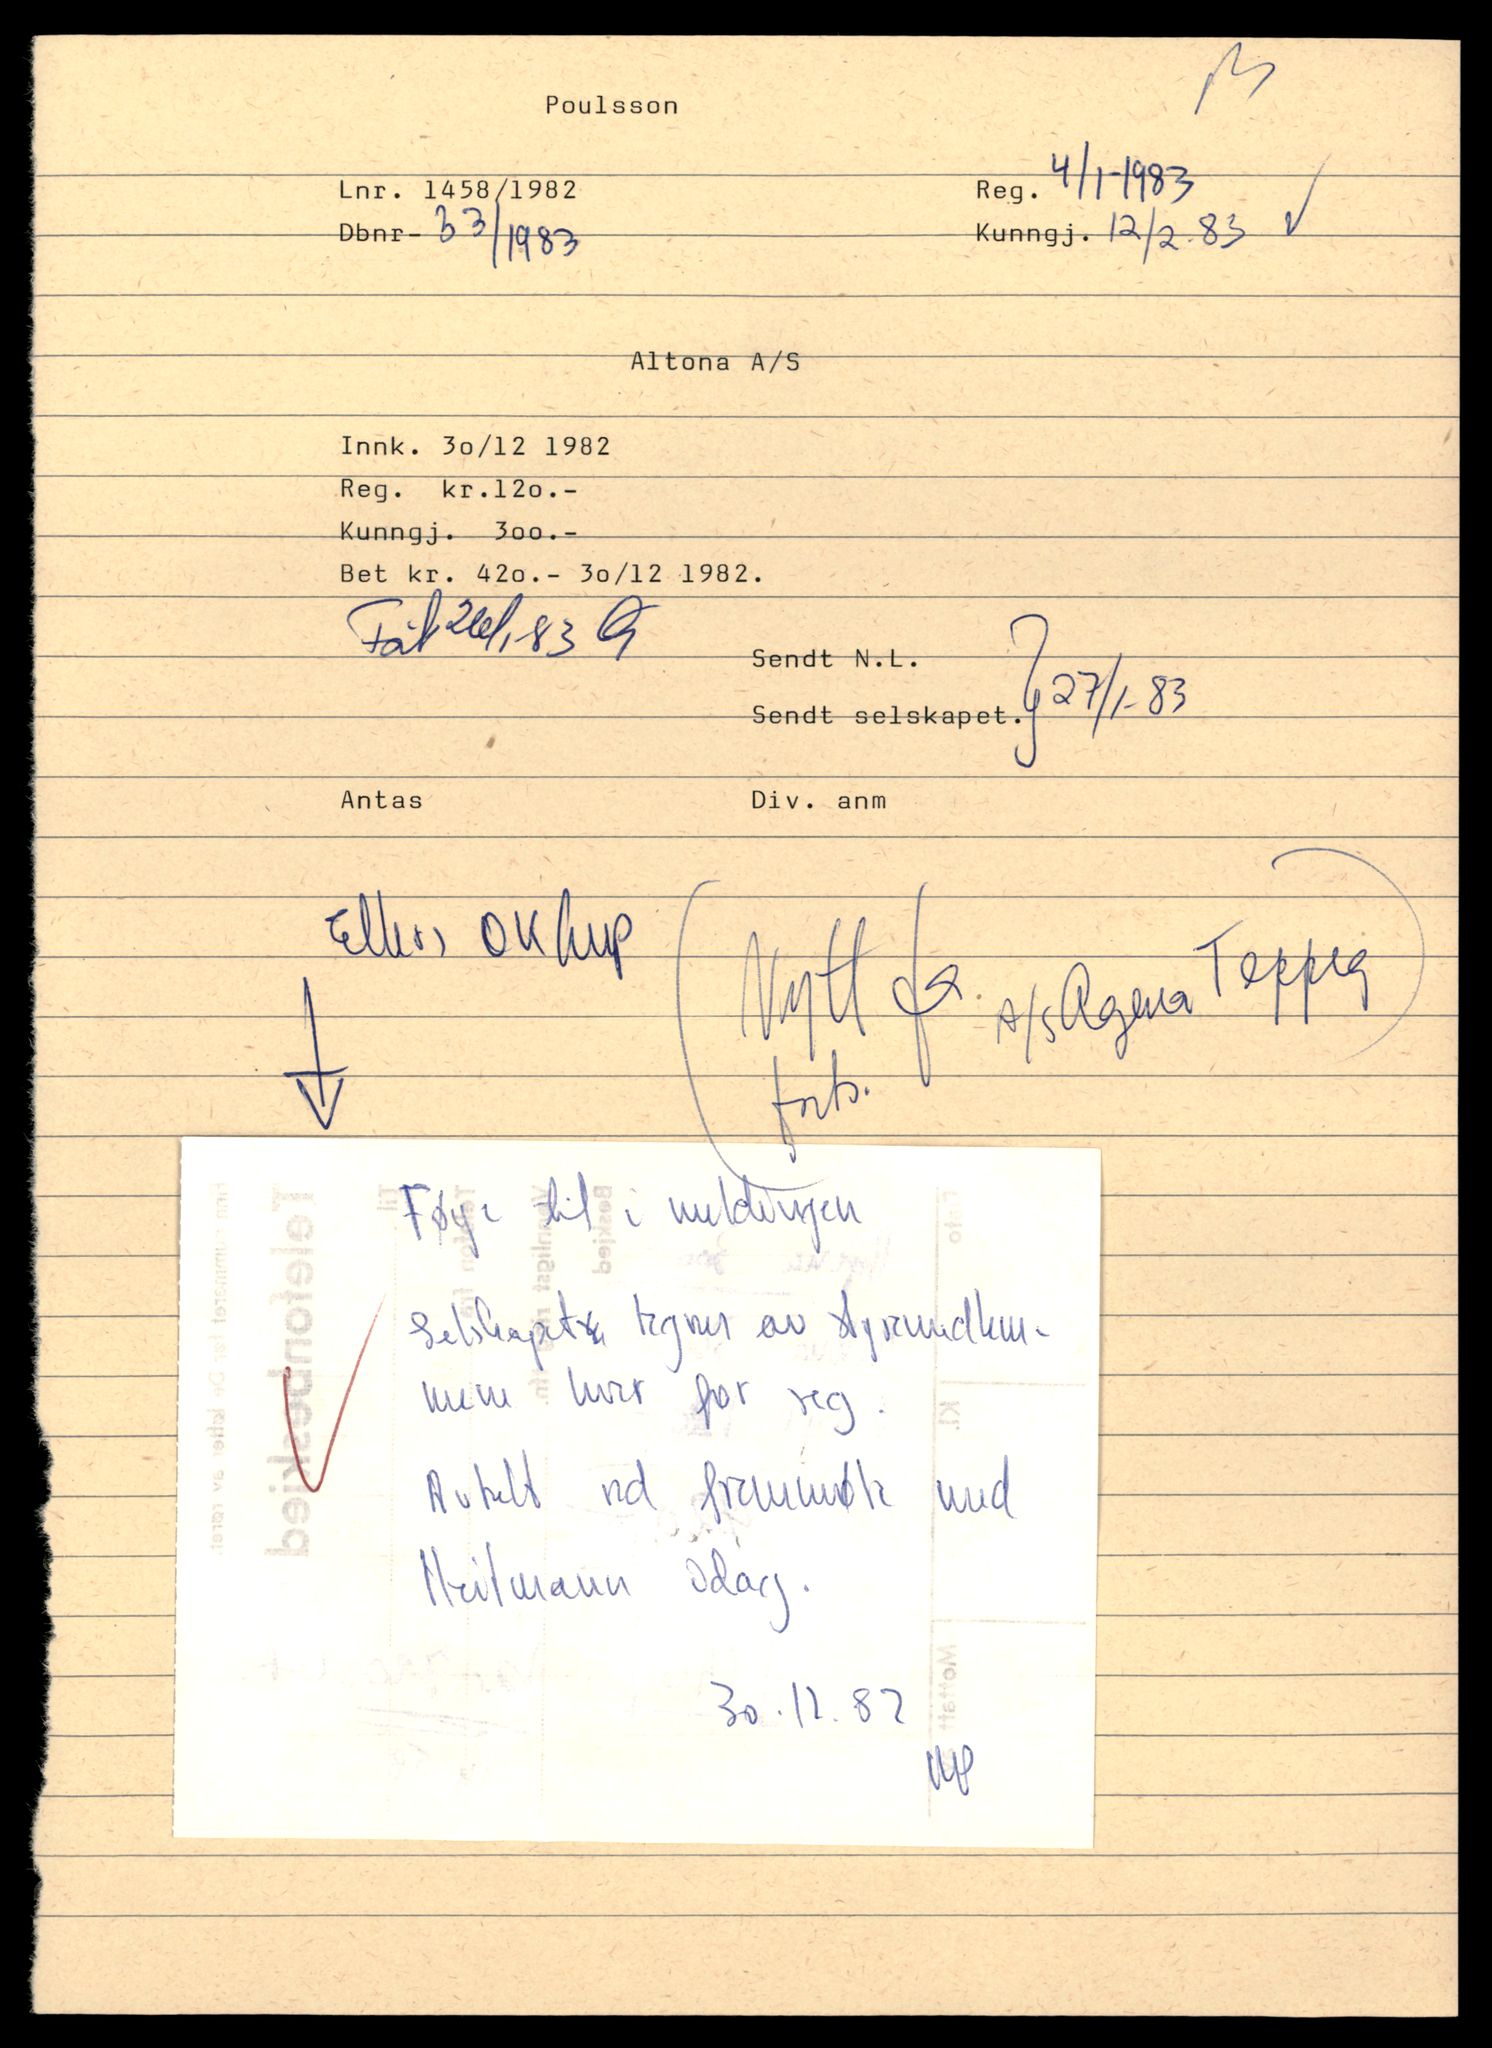 Poulsson
Lnr. 1458/1982
Reg. 4/1-1983
Dbnr- 33/1983
Kunngj. 12/2.83
Altona A/S
Innk. 3o/12 1982
Reg. kr.12o.-
Kunngj. 3oo.-
Bet kr. 42o.- 3o/12 1982.
26/1-83
Sendt N.L.
Sendt selskapet. 27/1-83
Antas
Div. anm
Ellers OK
(Nytt
A/S Agena Tepper)
forts.
Føye til i meldingen
Selskapet tegnes av styremedlem-
mene hver for seg.
Avtalt ved fremmøte med
Heitmann idag.
30.12.82
MP
Telefonbeskjed
Finn nummeret før De løfter av røret
Til
Beskjed
Dato
Kl.
Mottatt